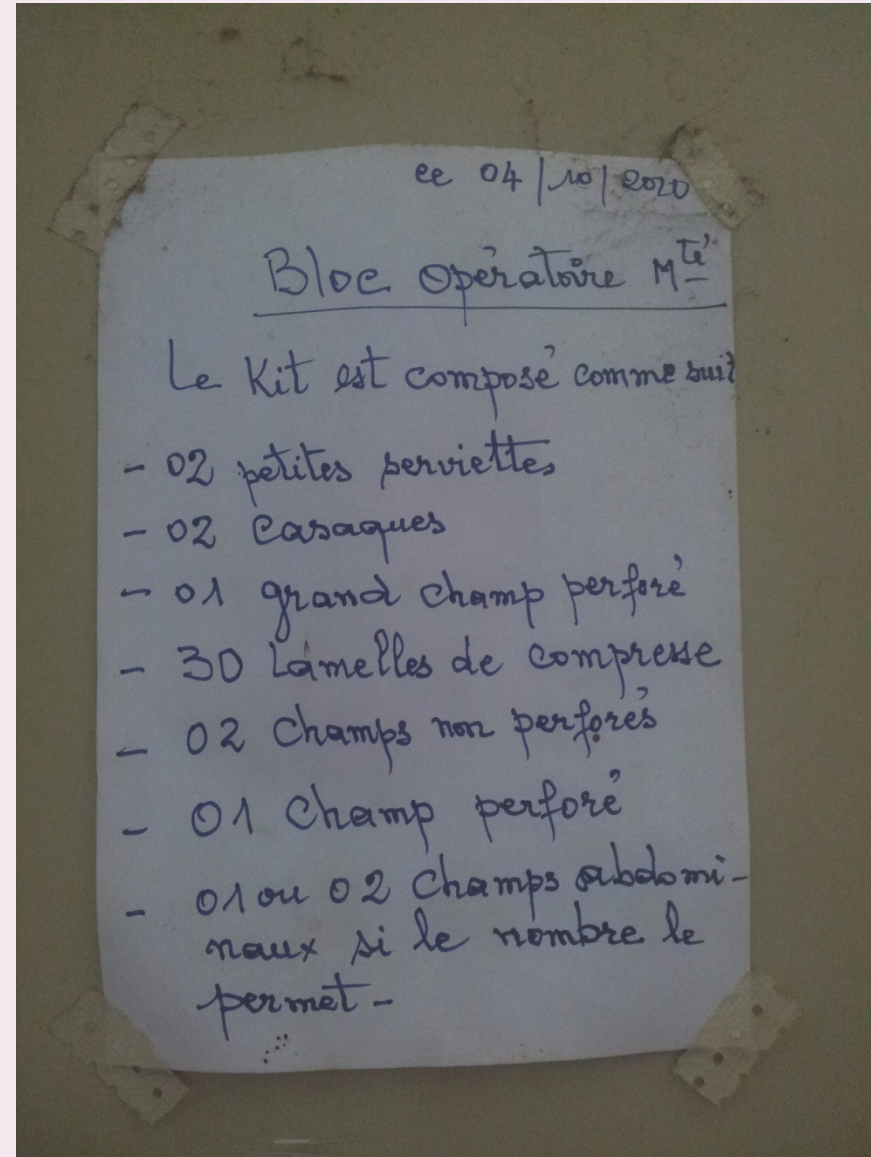 ce 04/10/2020
Bloc opératoire Mté
Le Kit est composé comme suit
- 02 petites serviettes
- 02 Casaques
- 01 grand champ perforé
- 30 Lamelles de compresse
- 02 Champs non perforés
- 01 Champ perforé
- 01 ou 02 Champs abdomi-
naux si le nombre le
permet -